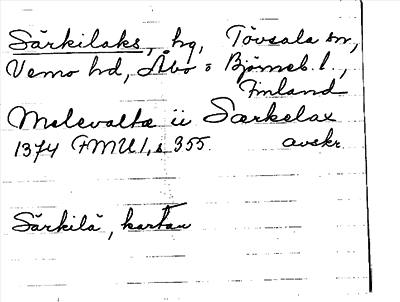 Särkilaks, hg, Tövsala sn,
Vemo hd, Åbo o Björneb. l.,
Finland
Melevalta ii Særkelax
1374 FMU 1, s 355. avskr.
Särkilä, kartan